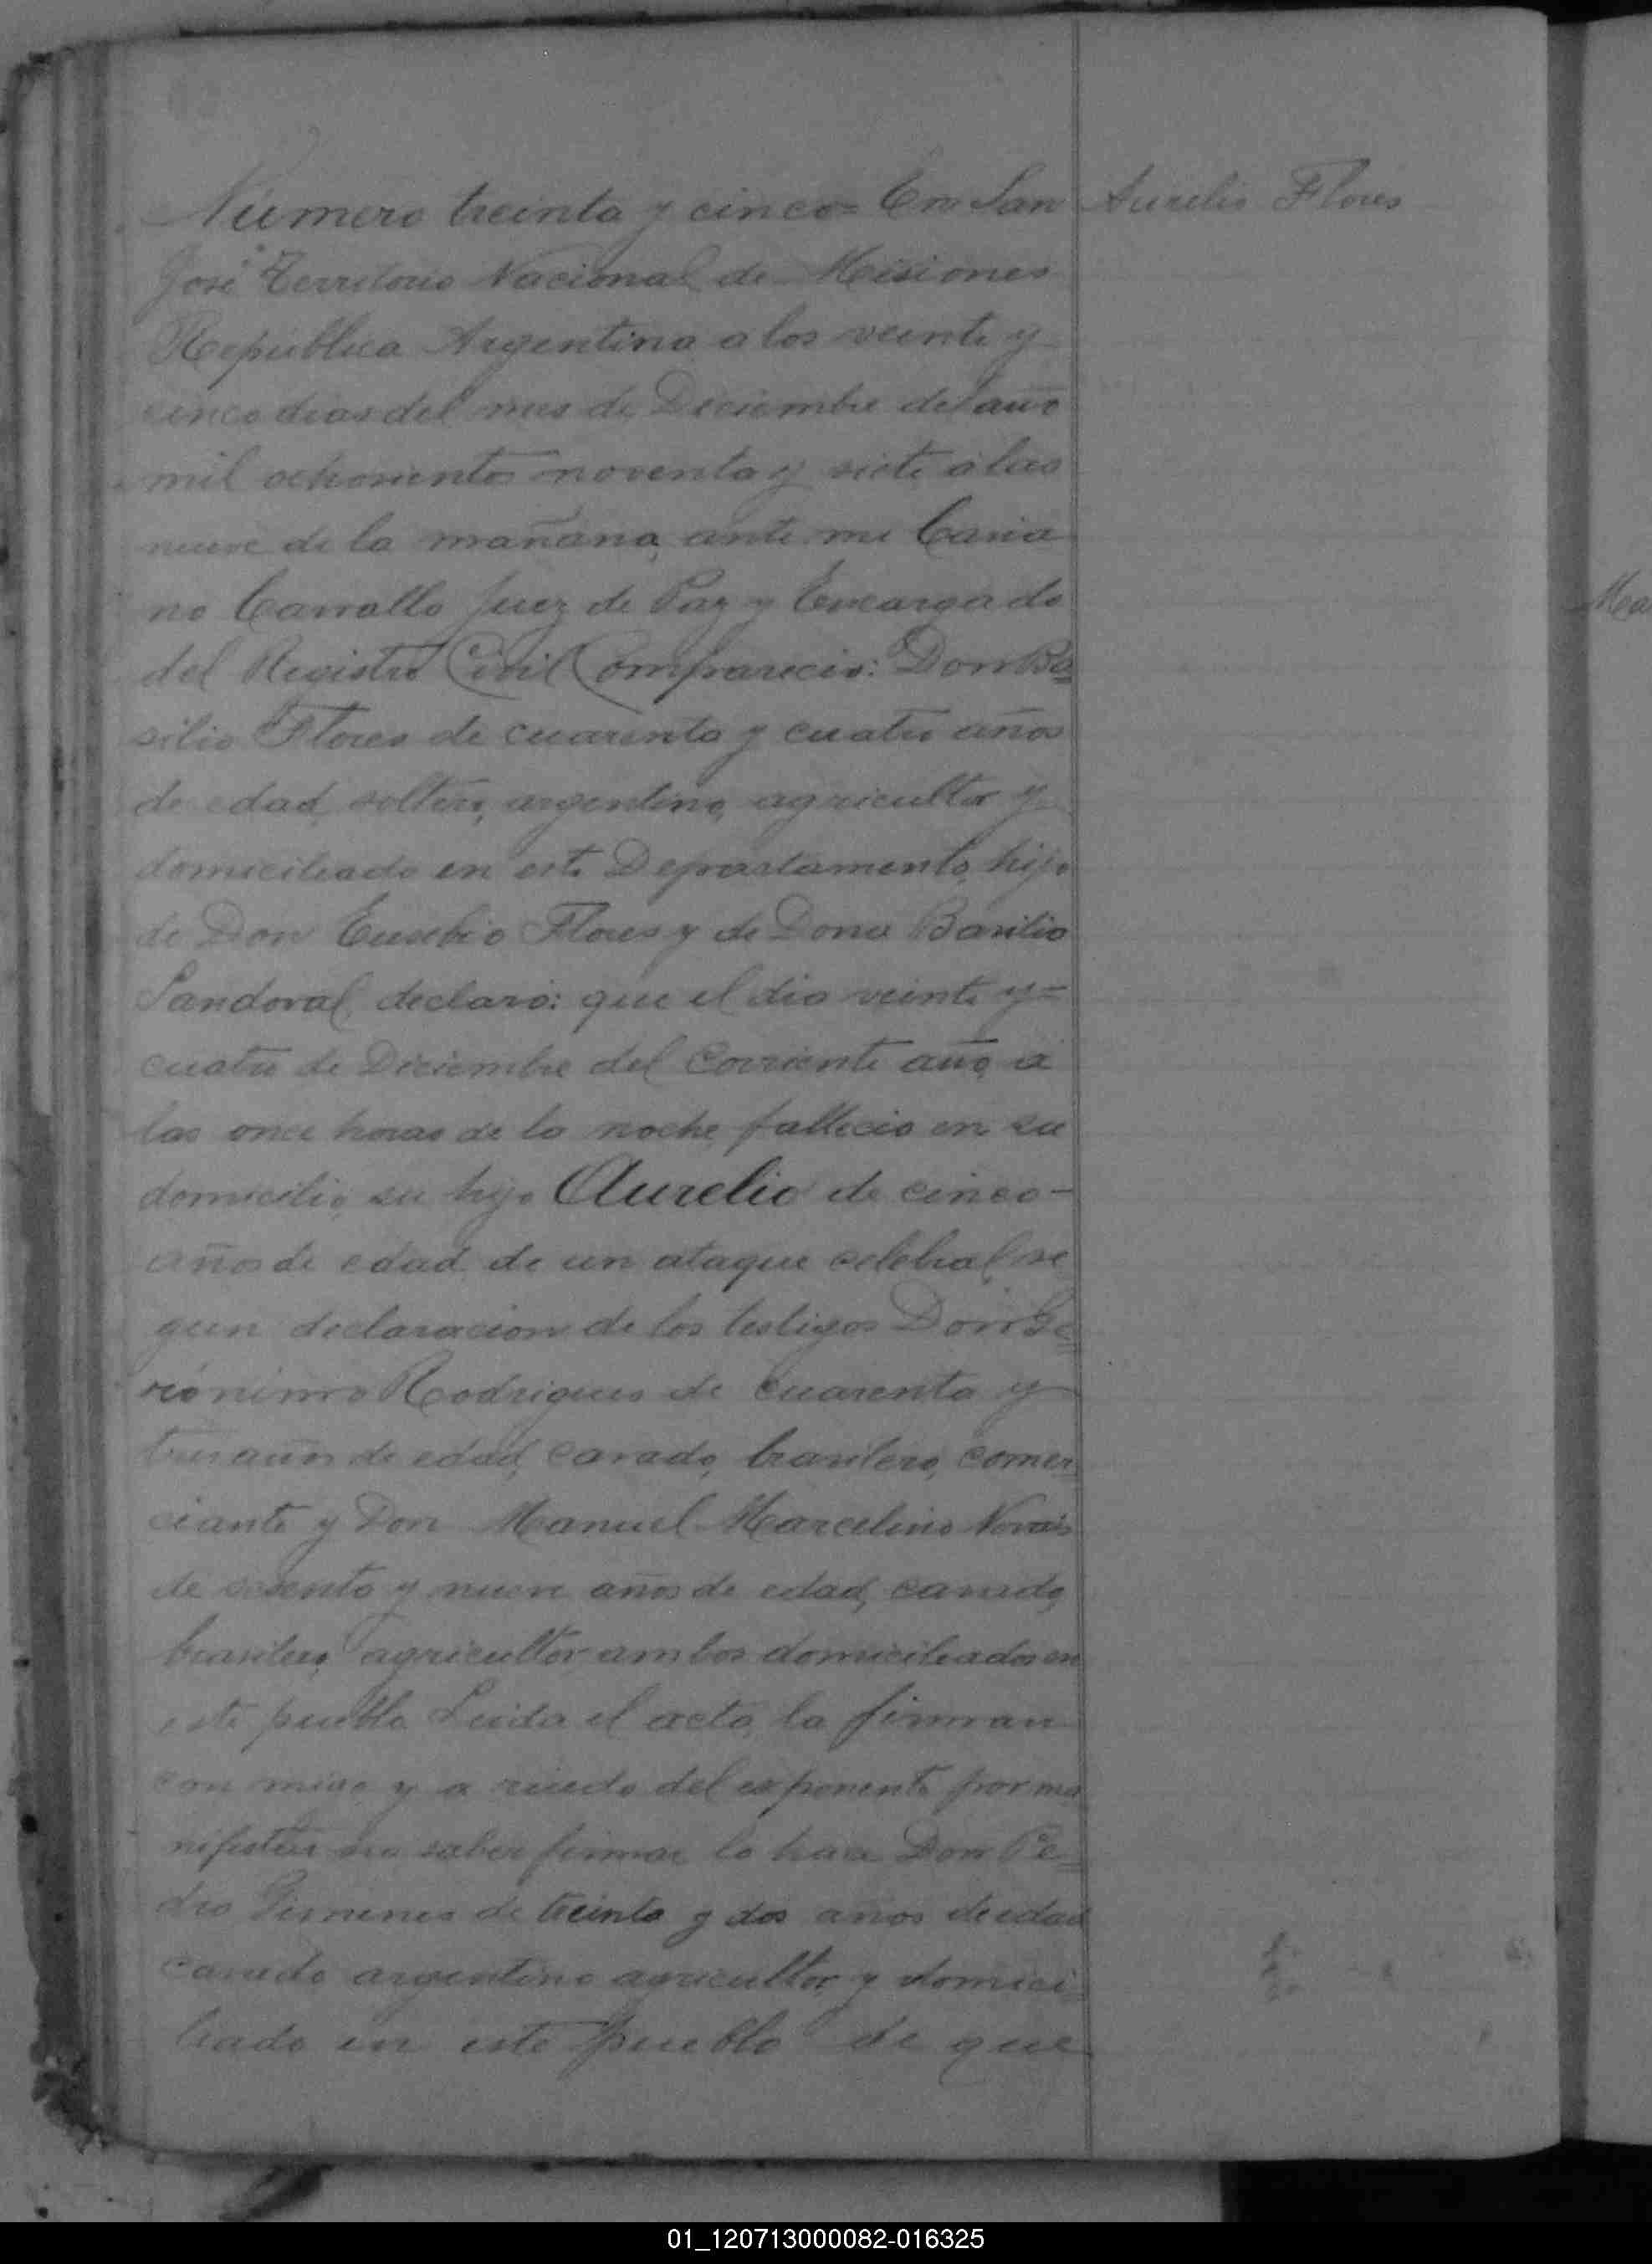 Número treinta y cinco= En San
Aurelio Flores
José Territorio Nacional de Misiones
República Argentina a los veinte y
cinco dias del mes de Diciembre del año
mil ochocientos noventa y siete á las
nueve de la mañana, ante mi Casia
no Carvallo Juez de Paz y Encargado
del Registro Civil Compareció: Don Ba=
silio Flores de cuarenta y cuatro años
de edad, soltero, argentino, agricultor y
domiciliado en este Departamento, hijo
de Don Eusebio Flores y de Dona Basilia
Sandoval, declaró: que el dia veinte y=
cuatro de Diciembre del Corriente año, a
las once horas de la noche, fallecio en su
domicilio, su hijo Aurelio de cinco-
años de edad de un ataque celebral, se
gun declaracion de los testigos Don Ge=
rónimo Rodrigues de cuarenta y
tres años de edad, casado, brasilero, comer
ciante y Don Manuel Marcelino Novais
de sesenta y nueve años de edad, casado,
brasilero, agricultor ambos domiciliados en
este pueblo Leida el acta, la firman
con migo y a ruedo del exponente por ma
nifestar no saber firmar lo hace Don Pe=
dro Gimenes de treinta y dos años de edad
casado argentino agricultor, y domici
liado en este pueblo de que
Ma
01_120713000082-016325